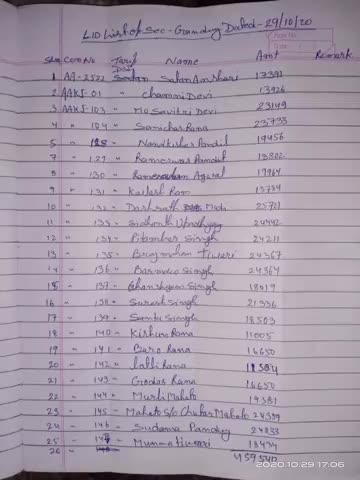 LID List of Sec - Gamday Dated - 29/10/20
Sl no Con No Tarif Name Amt Remark
DSI
1 AA-2522 Sadan Anshari 17391
2 AAKS-01 " Chamni Devi 13926
3 AAKS-103 " Mo Savitri Devi 23149
4 " 104 " Sanichar Rana 23733
5 " 128 - 19456
7 " 129 - Rameswar Pandit 13802
8 " 130 - Agrwal 19964
9 " 131 - Kailash Ram 13734
10 " 132 - Dashrath Modi 25721
11 " 133 - Sidhnath Upadhyay 24442
12 " 134 - Pitamber Singh 24211
13 " 135 - Brajmohan Tiwari 24367
14 " 136 - Singh 24364
15 " 137 - Ghanshyam Singh 18019
16 " 138 - Suresh Singh 21336
17 " 139 - Santu Singh 18503
18 " 140 - Kishun Rana 11005
19 " 141 - Baro Rana 16650
20 " 142 - Lakhi Rana 18504
21 " 143 - Rana 16650
22 " 144 - Murli Mahato 19381
23 - 145 - Mahato S/o Mahato 24399
24 " 146 - Sudama Pandey 24833
25 " 147 - Munna Tiwari 18474
26 "
459540
2020.10.29 17:06